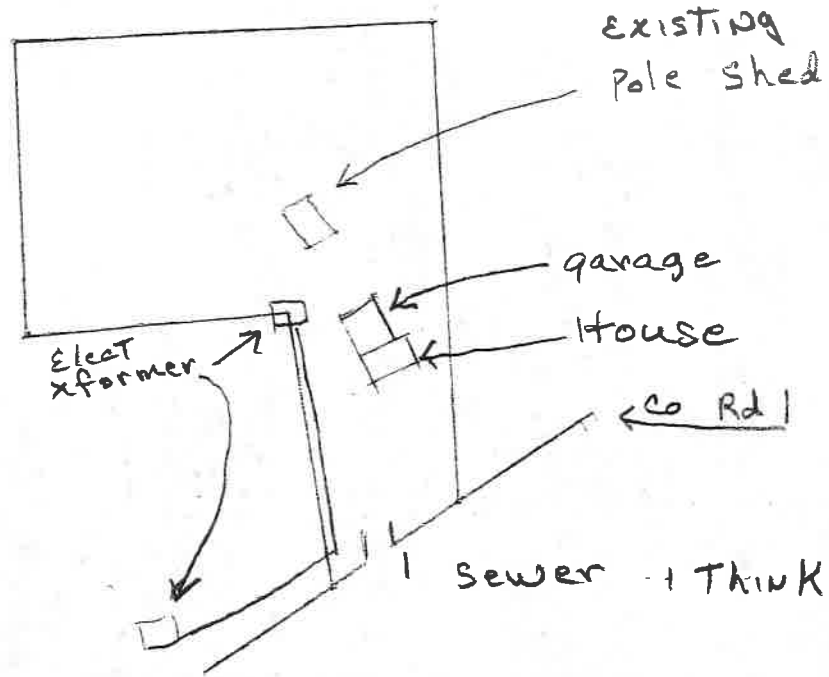 Existing
Pole Shed
garage
House
Elect
xformer
Co Rd 1
Sewer I Think